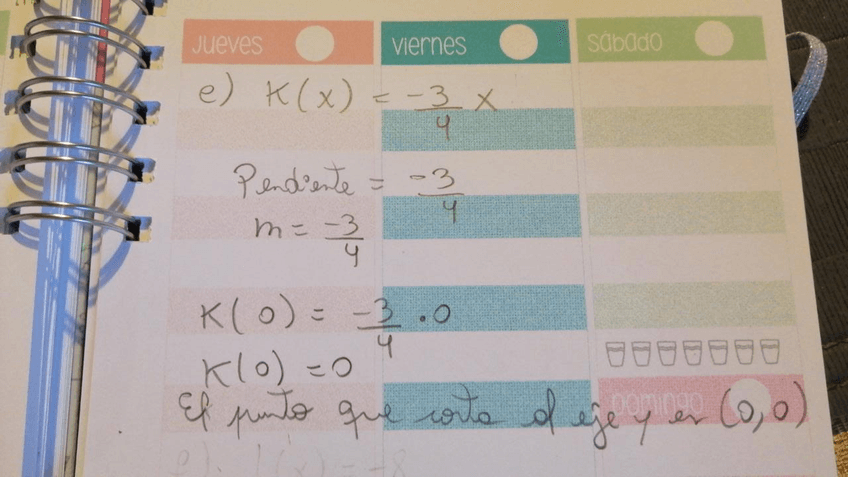 jueves viernes sábado
e) K(x) = -3/4 x
Pendiente = -3/4
m = -3/4
K(0) = -3/4 . 0
K(0) = 0
Domingo
El punto que corta al eje y es (0,0)